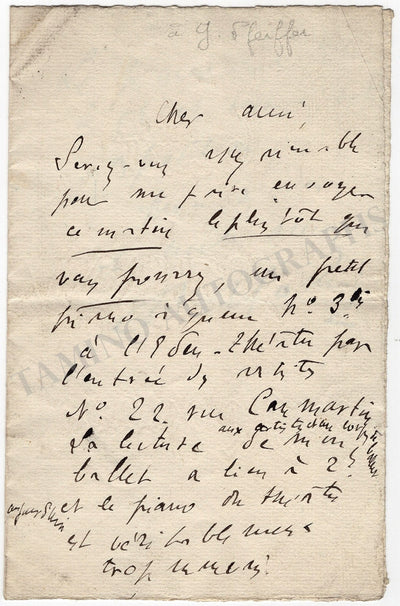 à G. Pfeiffer
Cher ami,
Serez-vous assez aimable
pour me faire envoyer
ce matin le plus tôt que
vous pourrez, un petit
piano à queue No. 3
à l'Eden-Théâtre par
l'entrée des artistes
No 22 rue Caumartin
aux artistes du corps de ballet
La lecture de mon
ballet a lieu à 2h
aujourd'hui
et le piano du théâtre
est véritablement
trop
TAMINO AUTOGRAPHS